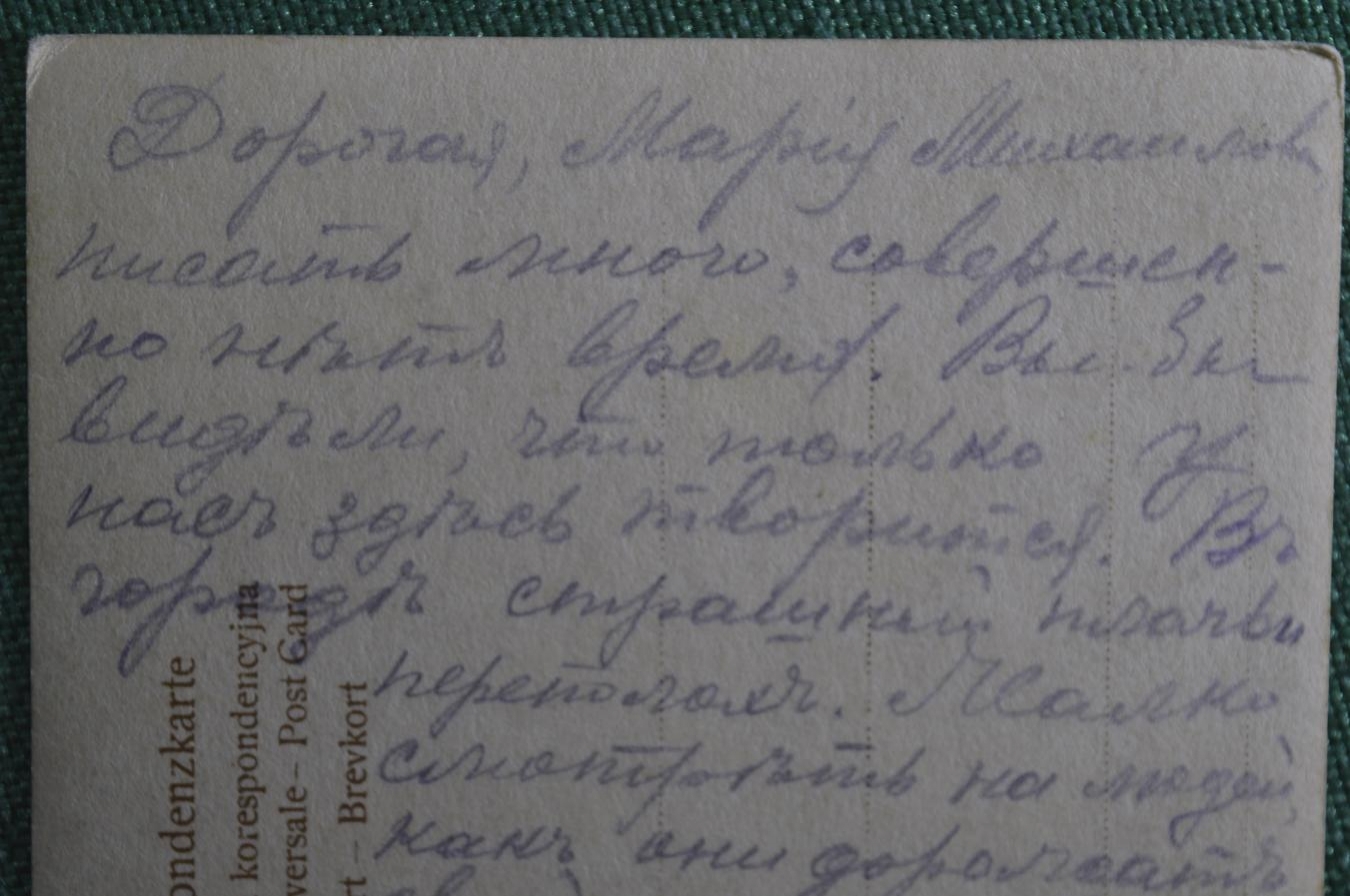 Дорогая, Марія Михаиловн
писать много, совершен-
но нѣтъ время. Вы-бы
видѣли, что только у
насъ здѣсь творится. Въ
городѣ страшный плачь и
переполохъ. Жалко
смотрѣть на людей,
какъ они дорожатъ
ondenzkarte
korespondencyjna
versale – Post Card
rt – Brevkort